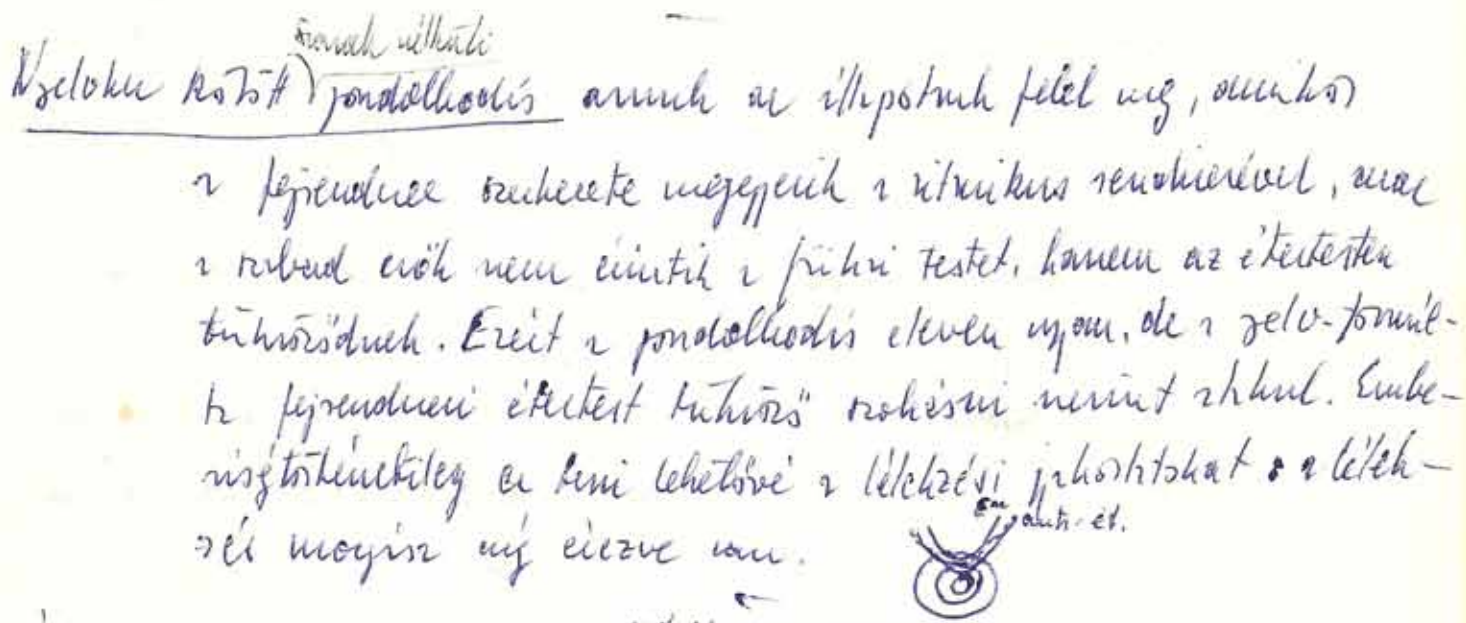 szavak nélküli
Nyelvhez kötött gondolkodás annak az állapotnak felel meg, amikor
a fejrendszer szerkezete megegyezik a ritmikus rendszerével, azaz
a szabad erők nem érintik a fizikai testet, hanem az étertesten
tükröződnek. Ezért a gondolkodás eleven ugyan, de a nyelv-formál-
ta fejrendszeri étertest tükröző szokásai szerint alakul. Embe-
riségtörténetileg ez teszi lehetővé a lélekzési gyakorlatokat s a lélek-
zés még érezve van.
ét.